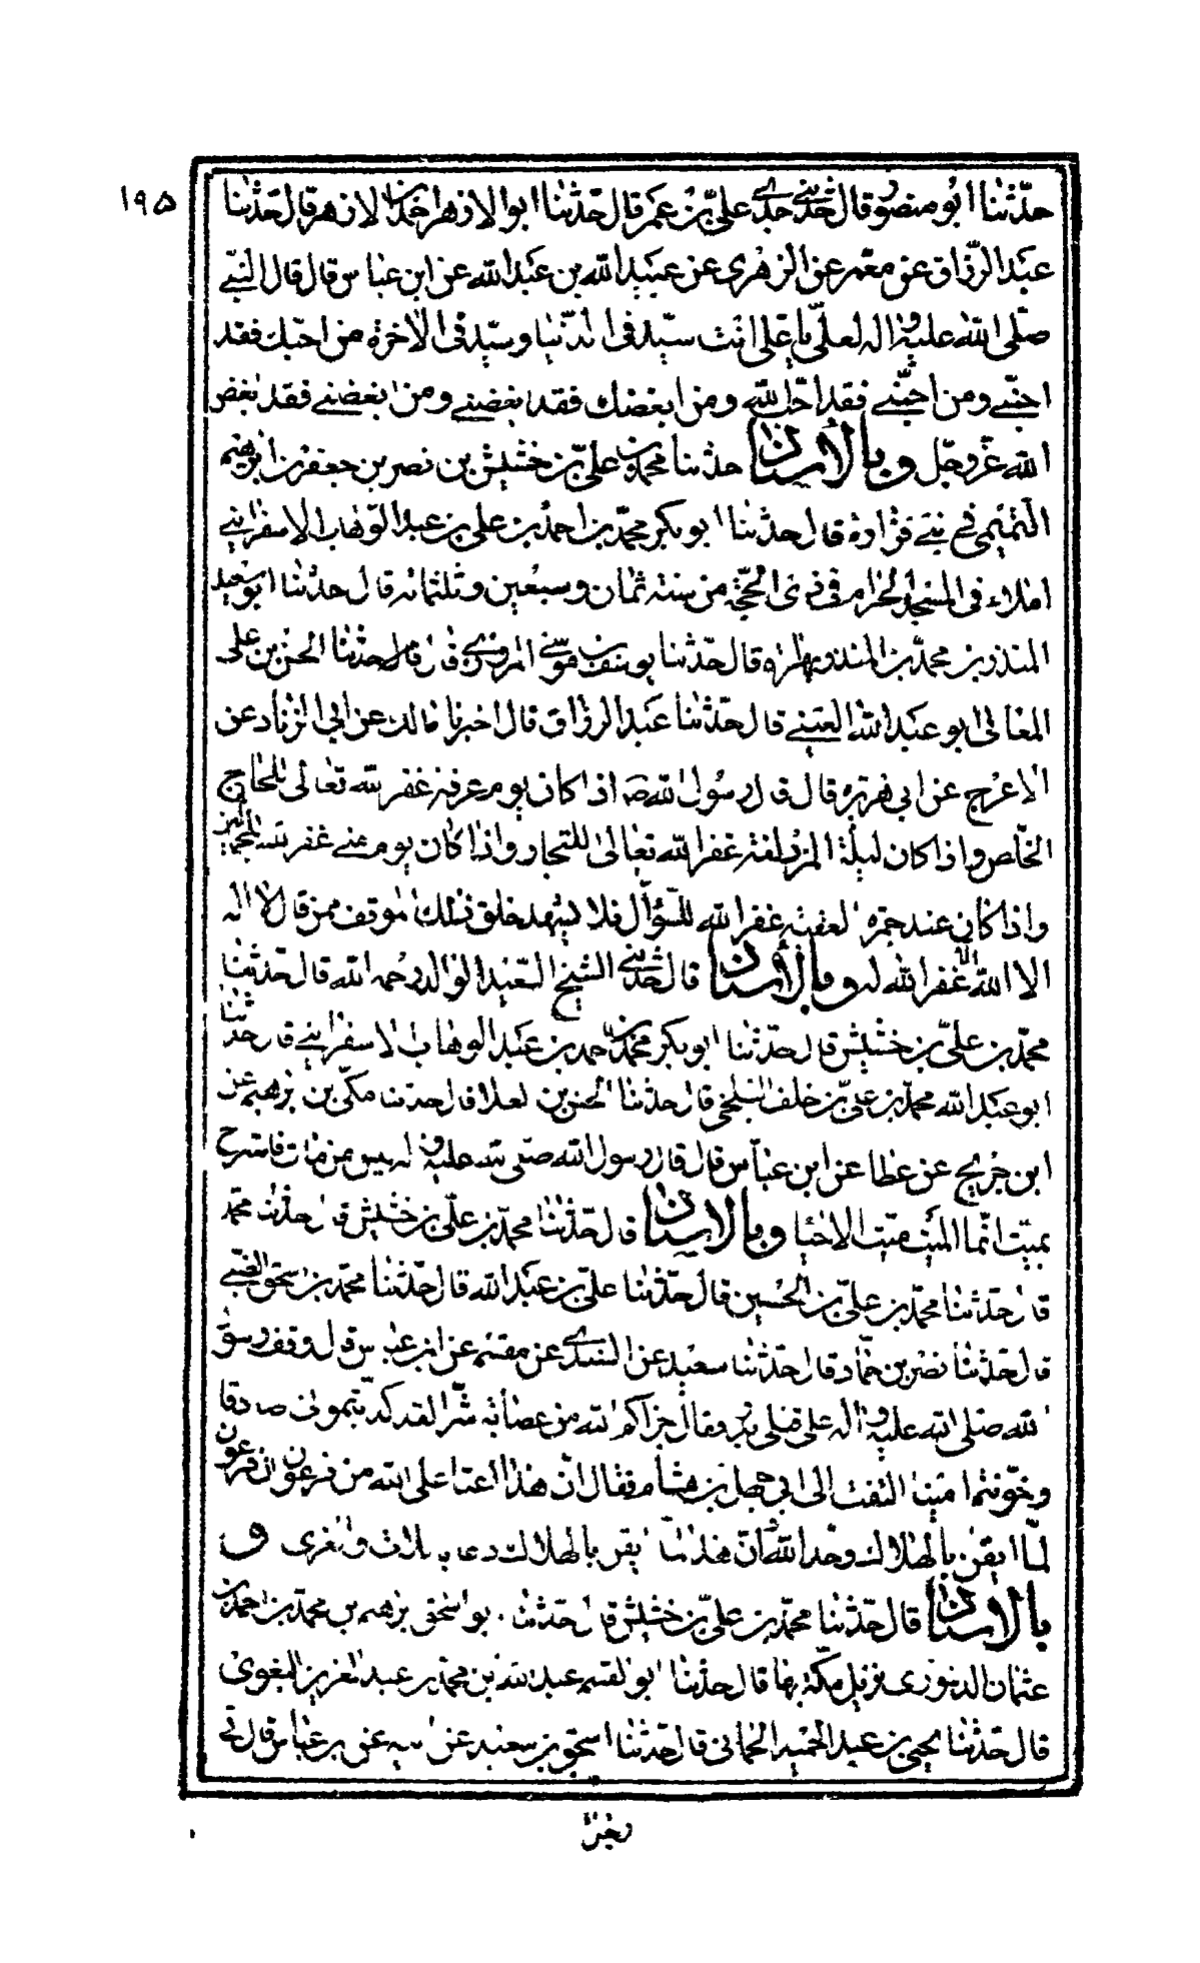 ١٩٥
حدّثنا ابو منصور قال حدّثني جدي علي بن عمر قال حدّثنا ابو الازهر احمد بن الازهر قال حدّثنا
عبد الرزاق عن معمر عن الزهرى عن عبيد الله بن عبد الله عن ابن عباس قال قال النبي
صلى الله عليه واله لعلي يا علي انت سيّد في الدّنيا وسيّد في الاخرة من احبّك فقد
احبّني ومن احبّني فقد احب الله ومن ابغضك فقد ابغضني ومن ابغضني فقد ابغض
الله عز وجل وبالاسناد حدثنا محمد بن علي بن خشيش بن نصر بن جعفر بن ابرهيم
التميمي في بني فزارة قال حدّثنا ابو بكر محمّد بن احمد بن علي بن عبد الوهاب الاسفرايني
املاء في المسجد الحرام في ذي الحجّة من سنة ثمان وسبعين وثلثمائة قال حدّثنا ابو سعيد
المنذر بن محمّد بن المنذر بهراة قال حدّثنا يوسف بن موسى المروزي قال حدّثنا الحسن بن علي
المعاني ابو عبد الله العتبي قال حدّثنا عبد الرزاق قال اخبرنا مالك عن ابي الزناد عن
الاعرج عن ابي هريرة قال قال رسول الله صه اذا كان يوم عرفة غفر الله تعالى للحاج
الخلّص واذا كان ليلة المزدلفة غفر الله تعالى للتجار واذا كان يوم منى غفر الله للجمالين
واذا كان عند جمرة العقبة غفر الله للسؤال فلا يشهد خلق ذلك الموقف ممن قال لا اله
الا الله الا غفر الله له وبالاسناد قال حدّثني الشيخ السّعيد الوالد رحمه الله قال حدّثنا
محمّد بن علي بن خشيش قال حدّثنا ابو بكر محمد بن احمد بن عبد الوهاب الاسفرايني قال حدّثنا
ابو عبد الله محمد بن علي بن خلف البلخي قال حدثنا الحسن بن العلا قال حدثنا مكّي بن ابرهيم عن
ابن جريج عن عطا عن ابن عباس قال قال رسول الله صلى الله عليه واله ليس من مات فاسترح
بميت انّما الميّت ميّت الاحيا وبالاسناد قال حدّثنا محمّد بن علّي بن خشيش قال حدّثنا محمّد
قال حدّثنا محمّد بن علي بن الحسين قال حدّثنا علي بن عبد الله قال حدّثنا محمّد بن اسحق الضبي
قال حدّثنا نصر بن حمّاد قال حدّثنا سعيد عن السّدي عن مقسم عن ابن عباس قال وقف رسول
الله صلى الله عليه واله على قتلى بدر وقال جزاكم الله من عصابة شرّا لقد كذّبتموني صادقا
وخوّنتم امينا التفت الى ابي جهل بن هشام فقال انّ هذا اعتا على الله من فرعون ان فرعون
لمّا ايقن بالهلاك وحّد الله وان هذا لمّا ايقن بالهلاك دعا باللات والعزى و
بالاسناد قال حدّثنا محمّد بن علي بن خشيش قال حدّثنا ابو اسحق ابرهيم بن محمّد بن احمد بن
عثمان الدينوري نزيل مكّة بها قال حدّثنا ابو القسم عبد الله بن محمد بن عبد العزيز البغوي
قال حدّثنا يحيى بن عبد الحميد الحماني قال حدّثنا اسحق بن سعيد عن ابيه عن ابن عباس قال لي